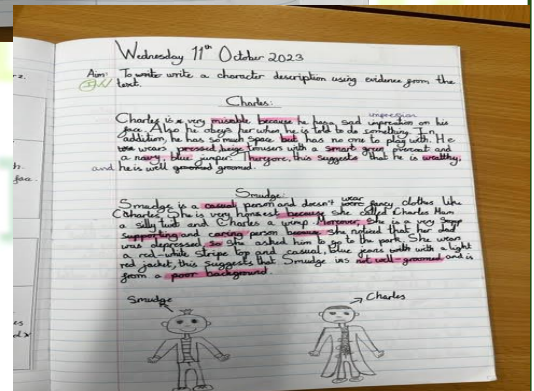 Wednesday 11th October 2023
Aim: To write a character description using evidence from the
text.
Charles:
Charles is very misable because he has a sad impression on his
face. Also he obeys her when he is told to do something. In
addition, he has so much space but has no one to play with. He
wears pressed, beige trousers with a smart green overcoat and
a navy, blue jumper. Therefore, this suggests that he is wealthy,
and he is well groomed.
Smudge:
Smudge is a casual person and doesn't wear fancy clothes like
Charles. She is very honsest because she called Charles Mum
a silly twit and Charles a wimp. Morover, She is a very
supporting and caring person because she noticed that her dad
was depressed so she asked him to go to the park. She wears
a red-white Stripe top and casual, blue jeans with a light
red jacket, this suggests that Smudge is not well-groomed and is
from a poor background.
Smudge
Charles